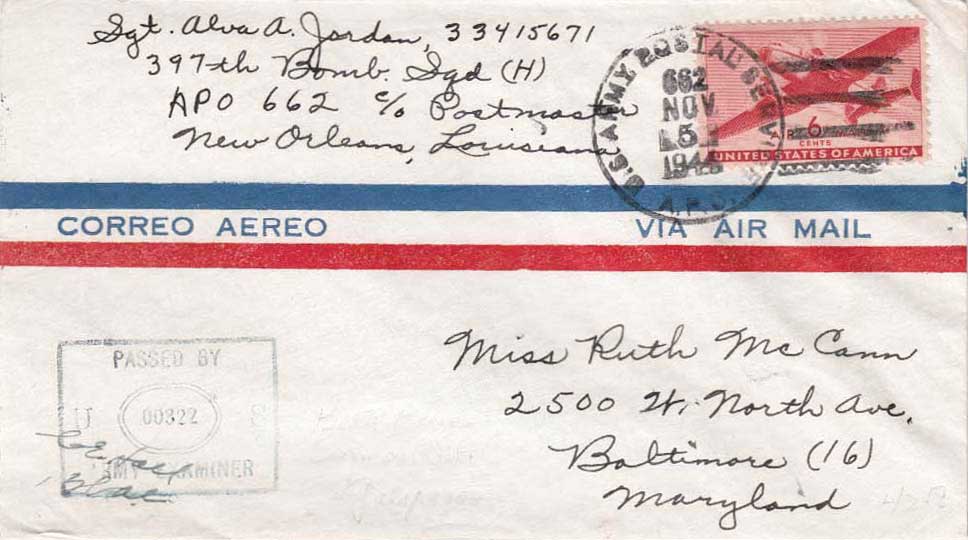 Sgt. Alva A. Jordan, 33415671
397th Bomb. Sqd (H)
APO 662 c/o Postmaster
New Orleans, Louisiana
U.S. ARMY POSTAL SERVICE
662
NOV
5
A.P.O.
AIR 6
CENTS
UNITED STATES OF AMERICA
CORREO AEREO VIA AIR MAIL
PASSED BY
U 00322 S
ARMY EXAMINER
Miss Ruth McCann
2500 W. North Ave.
Baltimore (16)
Maryland